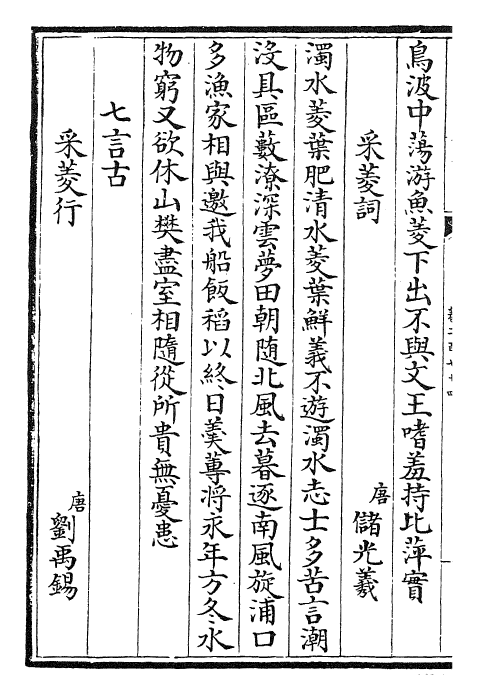 鳥波中蕩游魚菱下出不與文王嗜羞持比萍實
采菱詞　唐儲光羲
濁水菱葉肥清水菱葉鮮義不遊濁水志士多苦言潮
没具區藪潦深雲夢田朝随北風去暮逐南風旋浦口
多漁家相與邀我船飯稻以終日羮蓴将永年方冬水
物窮又欲休山樊盡室相隨從所貴無憂患
七言古
采菱行　唐劉禹錫